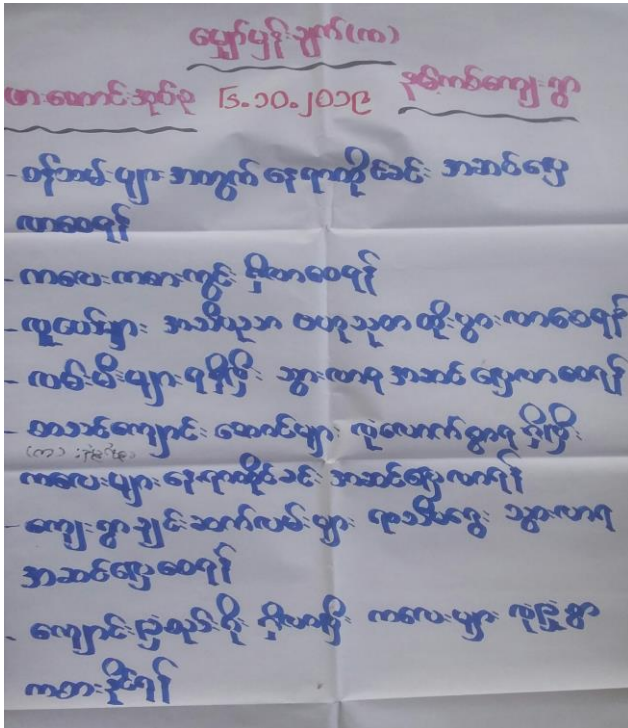 မျှော်မှန်းချက်(က)
ဖားဆောင်းအုပ်စု ၆.၁၀.၂၀၁၉ ကျေးရွာ
- ဝန်ထမ်းများ အတွက် နေရာထိုင်ခင်း အဆင်ပြေ
လာစေရန်
- ကလေးကစားကွင်း ရှိလာစေရန်
- လူငယ်များ အသိပညာ ဗဟုသုတ တိုးပွားလာစေရန်
- လမ်းမီးများ ရရှိပြီး သွားလာရ အဆင်ပြေလာစေရန်
- စာသင်ကျောင်း ဆောင်များ လုံလောက်စွာရ ရှိပြီး
ကလေးများ နေရာထိုင်ခင်း အဆင်ပြေလာရန်
- ကျေးရွာချင်းဆက်လမ်းများ ရာသီမရွေး သွားလာရ
အဆင်ပြေစေရန်
- ကျောင်းခြံစည်းရိုး ရှိလာပြီး ကလေးများ လုံခြုံစွာ
ကစားနိုင်ရန်